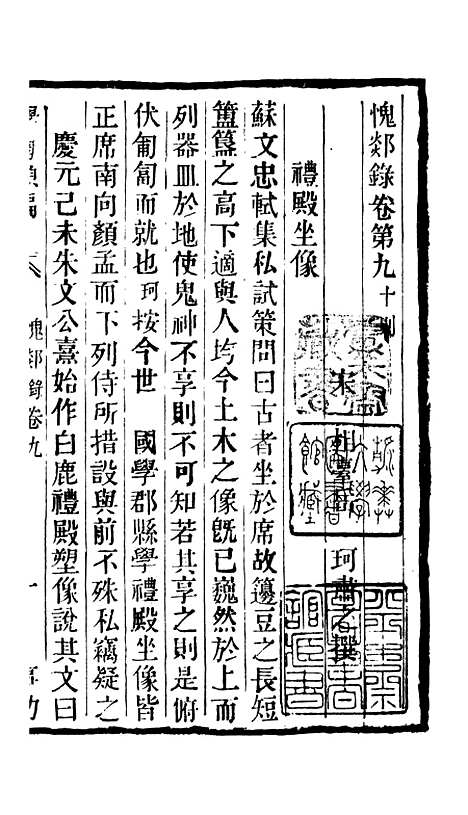 愧郯錄卷第九十則
宋 相臺岳 珂肅之撰
禮殿坐像
蘇文忠軾集私試策問曰古者坐於席故籩豆之長短
簠簋之高下適與人均今土木之像旣已巍然於上而
列器皿於地使鬼神不享則不可知若其享之則是俯
伏匍匐而就也珂按今世 國學郡縣學禮殿坐像皆
正席南向顏孟而下列侍所措設與前不殊私竊疑之
慶元己未朱文公熹始作白鹿禮殿塑像說其文曰
愧郯錄卷九 一
燕京大學圖書館藏